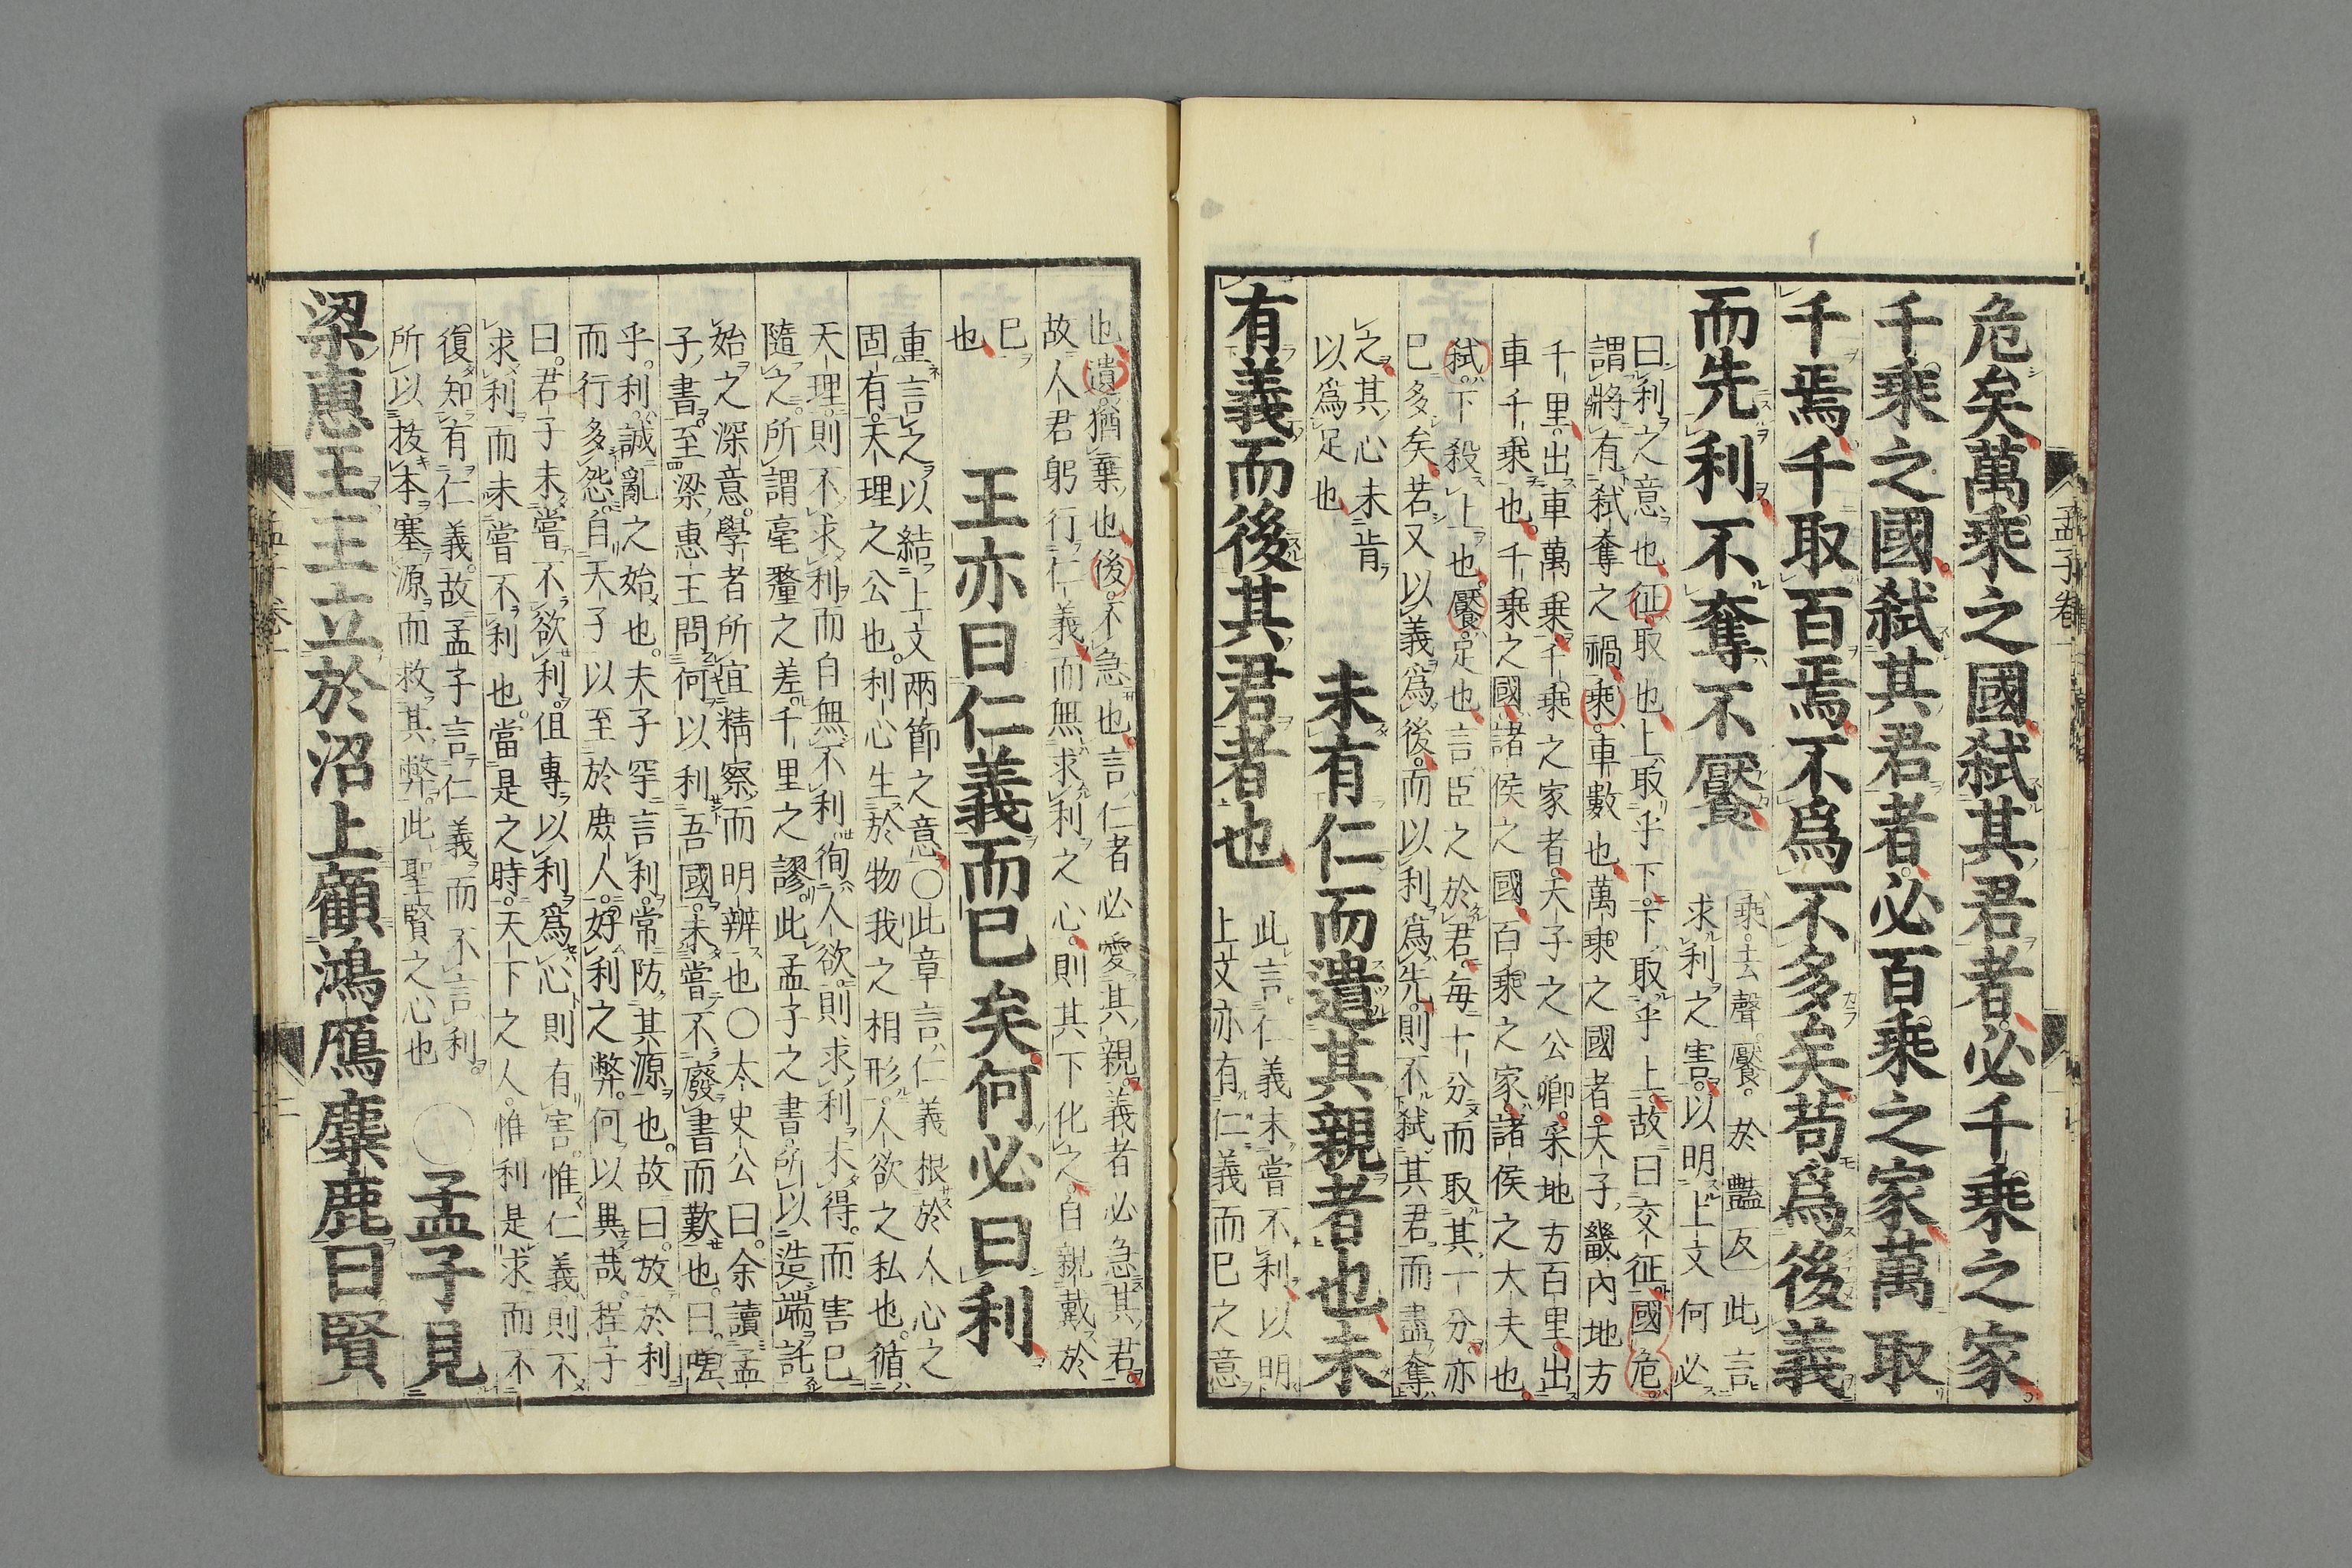 危矣萬乘之國弑其君者必千乘之家
千乘之國弑其君者必百乘之家萬取
千焉千取百焉不爲不多矣苟爲後義
而先利不奪不饜
乘。去聲饜。於豔反此言
求利之害。以明上文何必
曰利之意也征取也上取乎下。下取乎上。故曰交征國危。
謂將有弑奪之禍乘。車數也萬乘之國者。天子畿内地方
千里。出車萬乘千乘之家者。天子之公卿。采地方百里。出
車千乘也。千乘之國。諸侯之國百乘之家。諸侯之大夫也。
弑。下殺上也饜。足也言臣之於君。每十分而取其一分。亦
已多矣。若又以義爲後。而以利爲先。則不弑其君而盡奪
之其心未肯
以爲足也
未有仁而遺其親者也未
有義而後其君者也
此言仁義未嘗不利以明
上文亦有仁義而已之意
也遺。猶棄也後。不急也言仁者必愛其親。義者必急其君。
故人君躬行仁義而無求利之心。則其下化之。自親戴於
已
也
王亦曰仁義而已矣何必曰利
重言之以結上文兩節之意○此章言仁義根於人心之
固有。天理之公也。利心生於物我之相形。人欲之私也。循
天理。則不求利而自無不利。徇人欲。則求利未得。而害已
隨之。所謂毫釐之差。千里之謬。此孟子之書。所以造端託
始之深意。學者所宜精察而明辨也○太史公曰。余讀孟
子書。至梁惠王問何以利吾國。未嘗不廢書而歎也。曰。嗟
乎。利。誠亂之始也。夫子罕言利。常防其源也。故曰。放於利
而行多怨。自天子以至於庶人。好利之弊。何以異哉。程子
曰。君子未嘗不欲利。但專以利爲心則有害。惟仁義則不
求利而未嘗不利也。當是之時。天下之人。惟利是求而不
復知有仁義。故孟子言仁義而不言利。
所以拔本塞源而救其弊。此聖賢之心也
○孟子見
梁惠王王立於沼上顧鴻鴈麋鹿曰賢
孟子卷一